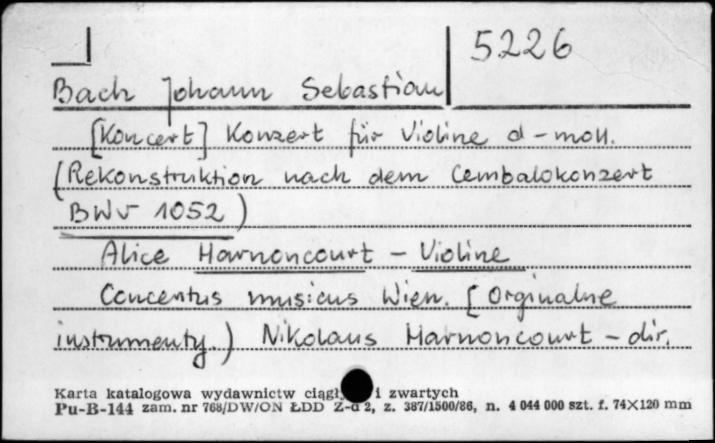 5226
Bach Johann Sebastian
[Koncert] Konzert für Violine d-moll.
(Rekonstruktion nach dem Cembalokonzert
BWV 1052)
Alice Harnoncourt - Violine
Concentus musicus Wien. [Orginalne
instrumenty.) Nikolaus Harnoncourt - dir.
Karta katalogowa wydawnictw ciągł i zwartych
Pu-B-144 zam. nr 768/DW/ON ŁDD Z-d 2, z. 387/1500/86, n. 4 044 000 szt. f. 74×120 mm